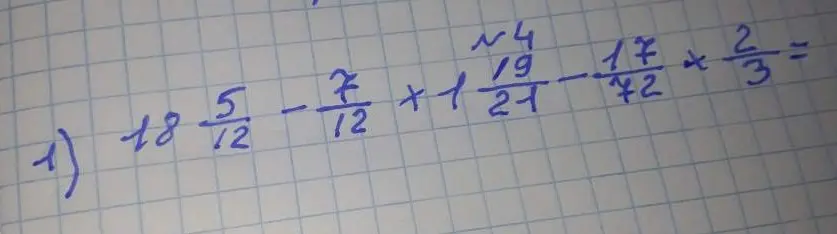 №4
1) 18 5/12 - 7/12 × 1 19/21 - 17/72 × 2/3 =